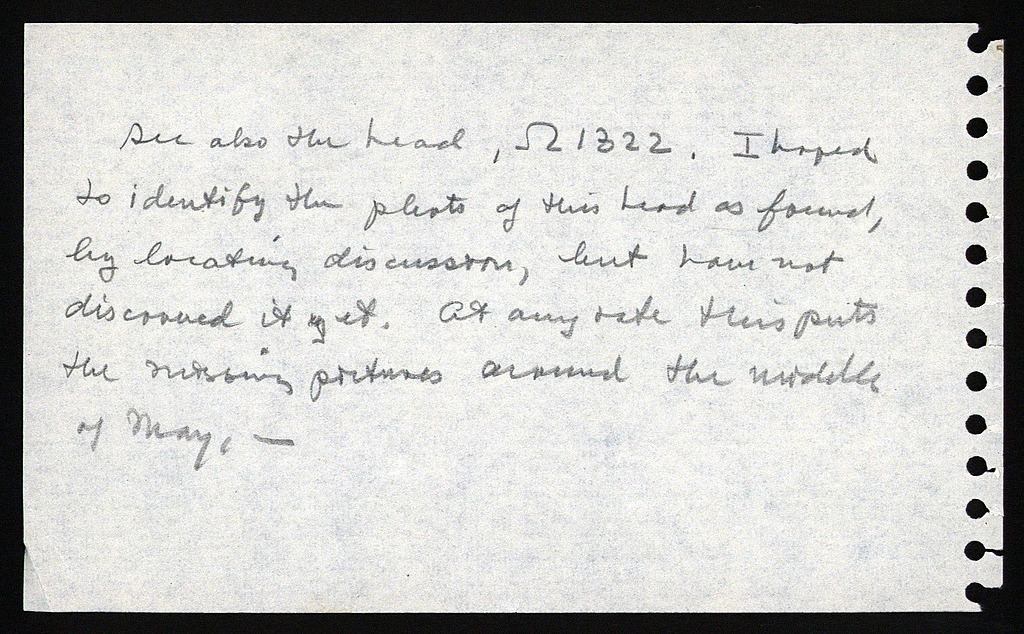 See also the head, Ω 1322. I hoped
to identify the photo of this head as found,
by locating discussion, but have not
discovered it yet. At any rate this puts
the missing pictures around the middle
of May. —